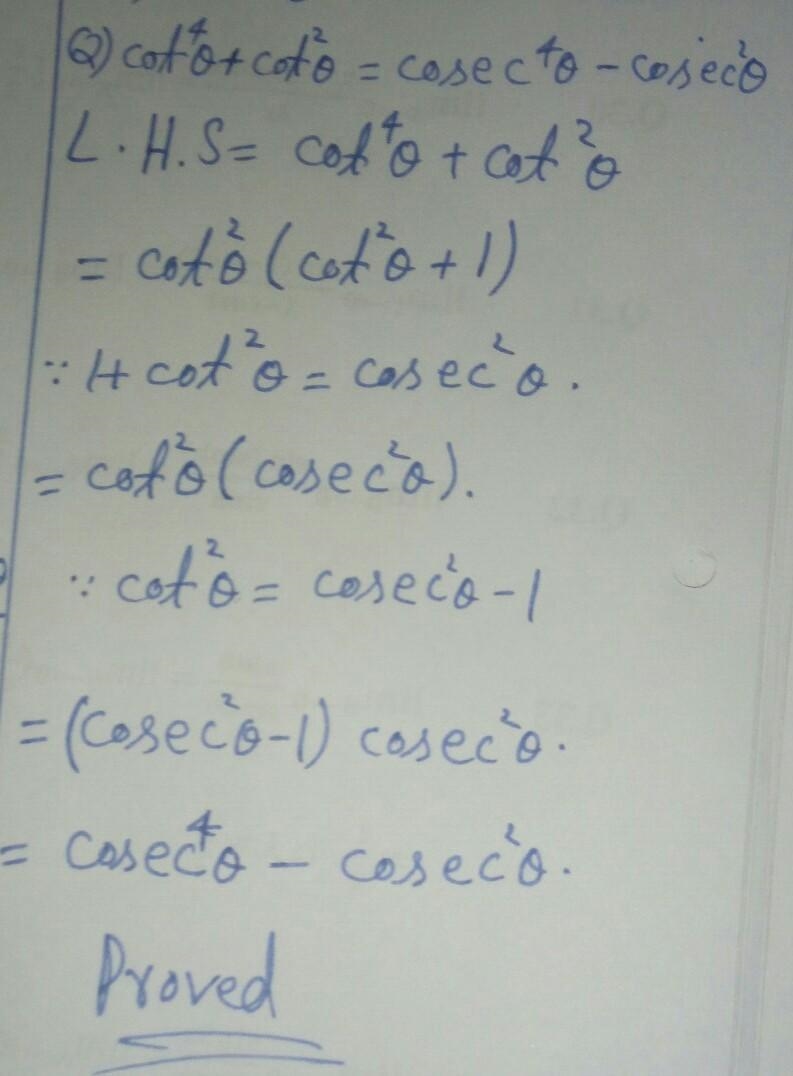 Q) cot⁴θ + cot²θ = cosec⁴θ - cosec²θ
L.H.S = cot⁴θ + cot²θ
= cot²θ (cot²θ + 1)
∵ 1+ cot²θ = cosec²θ.
= cot²θ (cosec²θ).
∵ cot²θ = cosec²θ - 1
= (cosec²θ - 1) cosec²θ.
= cosec⁴θ - cosec²θ.
Proved